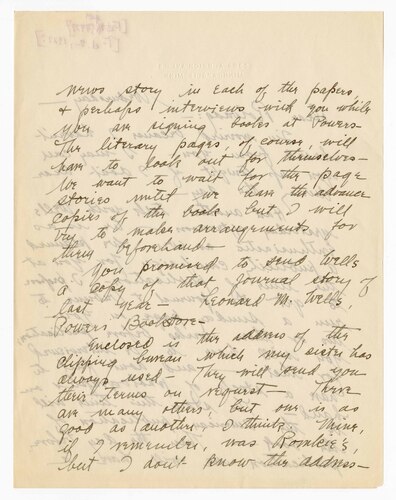 news story in each of the papers
& perhaps interviews with you while
you are signing books at Powers—
The literary pages, of course, will
have to look out for themselves—
We want to wait for the page
stories until we have the advance
copies of the book, but I will
try to make arrangements for
them beforehand—
You promised to send Wells
a copy of that Journal story of
last year— Leonard M. Wells,
Powers Bookstore—
Enclosed is the address of the
clipping bureau which my sister has
always used— They will send you
their terms on request— There
are many others, but one is as
good as another I think. Mine,
if I remember, was Romeike's,
but I don't know the address—